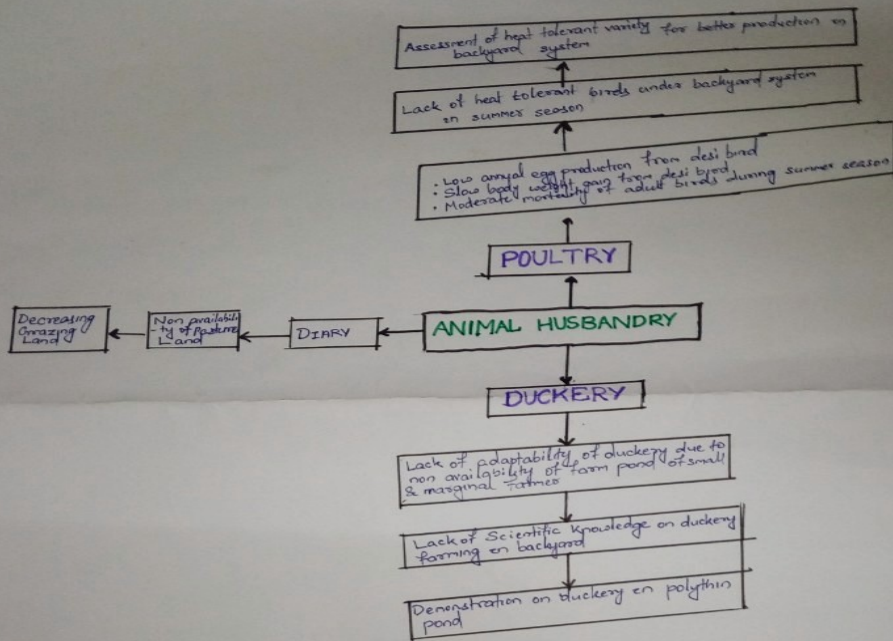 Assessment of heat tolerant variety for better production in
backyard system
Lack of heat tolerant birds under backyard system
in summer season
• Low annual egg production from desi bird
• Slow body weight gain from desi bird
• Moderate mortality of adult birds during summer season
POULTRY
ANIMAL HUSBANDRY
DIARY
Non availabili
-ty of Pasture
Land
Decreasing
Grazing
Land
DUCKERY
Lack of adaptability of duckery due to
non availability of farm pond of small
& marginal farmer
Lack of Scientific Knowledge on duckery
farming in backyard
Demenstration on duckery in polythin
pond